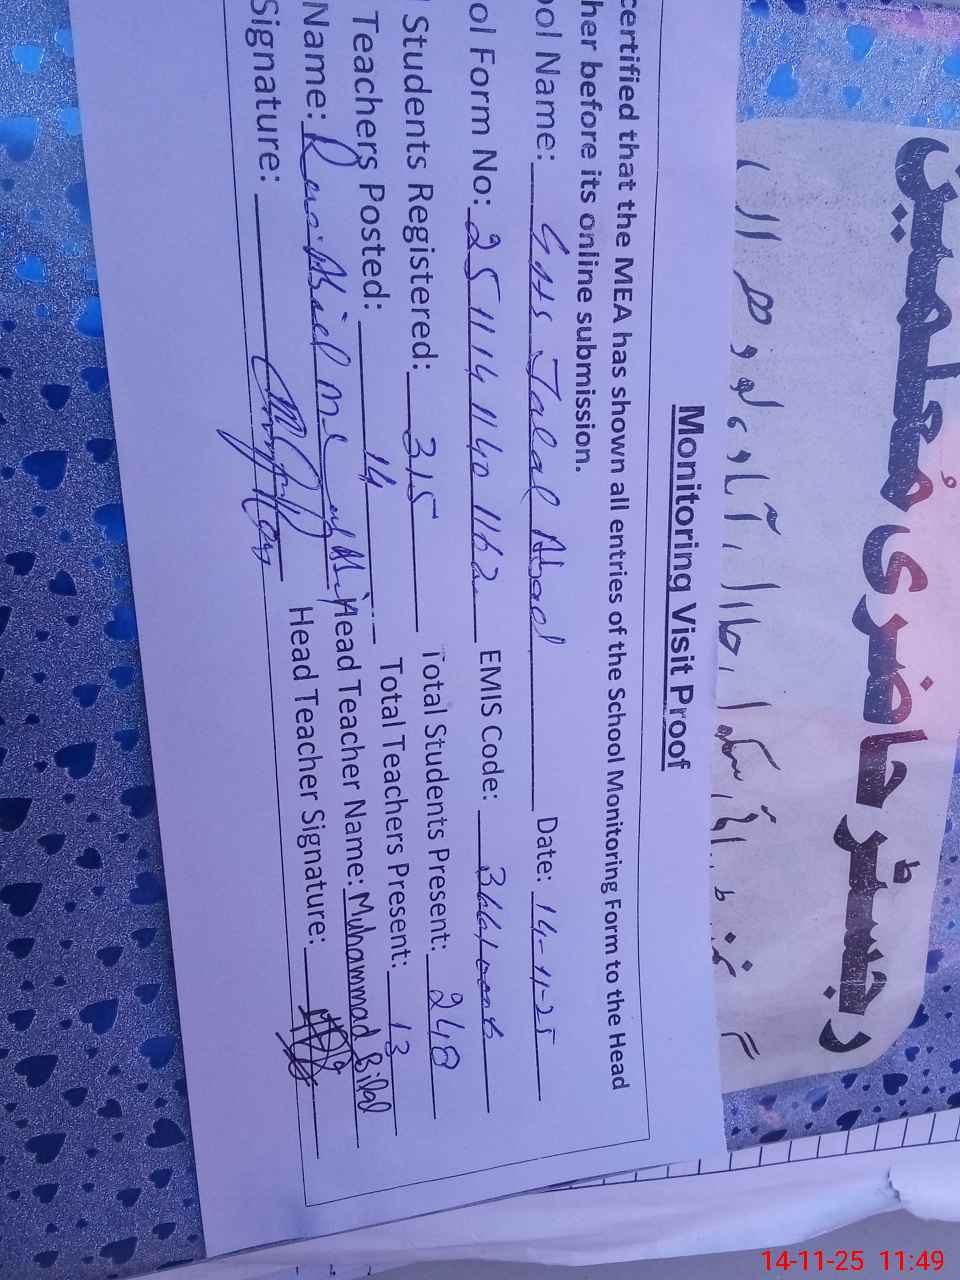 رجسٹر حاضری معلمین
Monitoring Visit Proof
certified that the MEA has shown all entries of the School Monitoring Form to the Head
her before its online submission.
ool Name: GHS Jalal Abad Date: 14-11-25
ol Form No: 25111411401162 EMIS Code:
Students Registered: 315 Total Students Present: 248
Teachers Posted: 14 Total Teachers Present: 13
Name: Head Teacher Name: Muhammad Bilal
Signature: Head Teacher Signature:
14-11-25 11:49